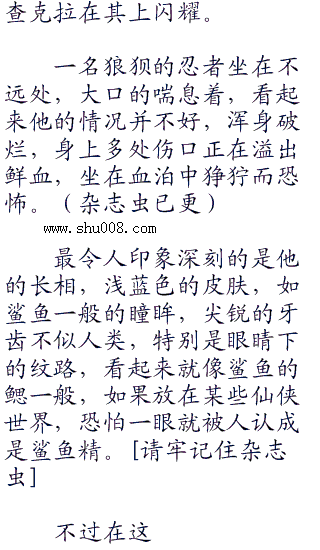 查克拉在其上闪耀。
一名狼狈的忍者坐在不
远处，大口的喘息着，看起
来他的情况并不好，浑身破
烂，身上多处伤口正在溢出
鲜血，坐在血泊中狰狞而恐
怖。（杂志虫已更）
www.shu008.com
最令人印象深刻的是他
的长相，浅蓝色的皮肤，如
鲨鱼一般的瞳眸，尖锐的牙
齿不似人类，特别是眼睛下
的纹路，看起来就像鲨鱼的
鳃一般，如果放在某些仙侠
世界，恐怕一眼就被人认成
是鲨鱼精。[请牢记住杂志
虫]
不过在这